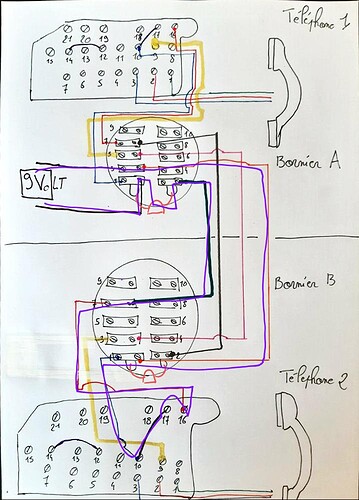 Téléphone 1
21 20 19 18 17 16
15 14 13 12 11 10 9 8
7 6 5 4 3 2 1
9 10
7 8
5 6
3 4
Bornier A
9V LT
Bornier B
9 10
7 8
5 6
3 4
Téléphone 2
21 20 19 18 17 16
15 14 13 12 11 10 9 8
7 6 5 4 3 2 1